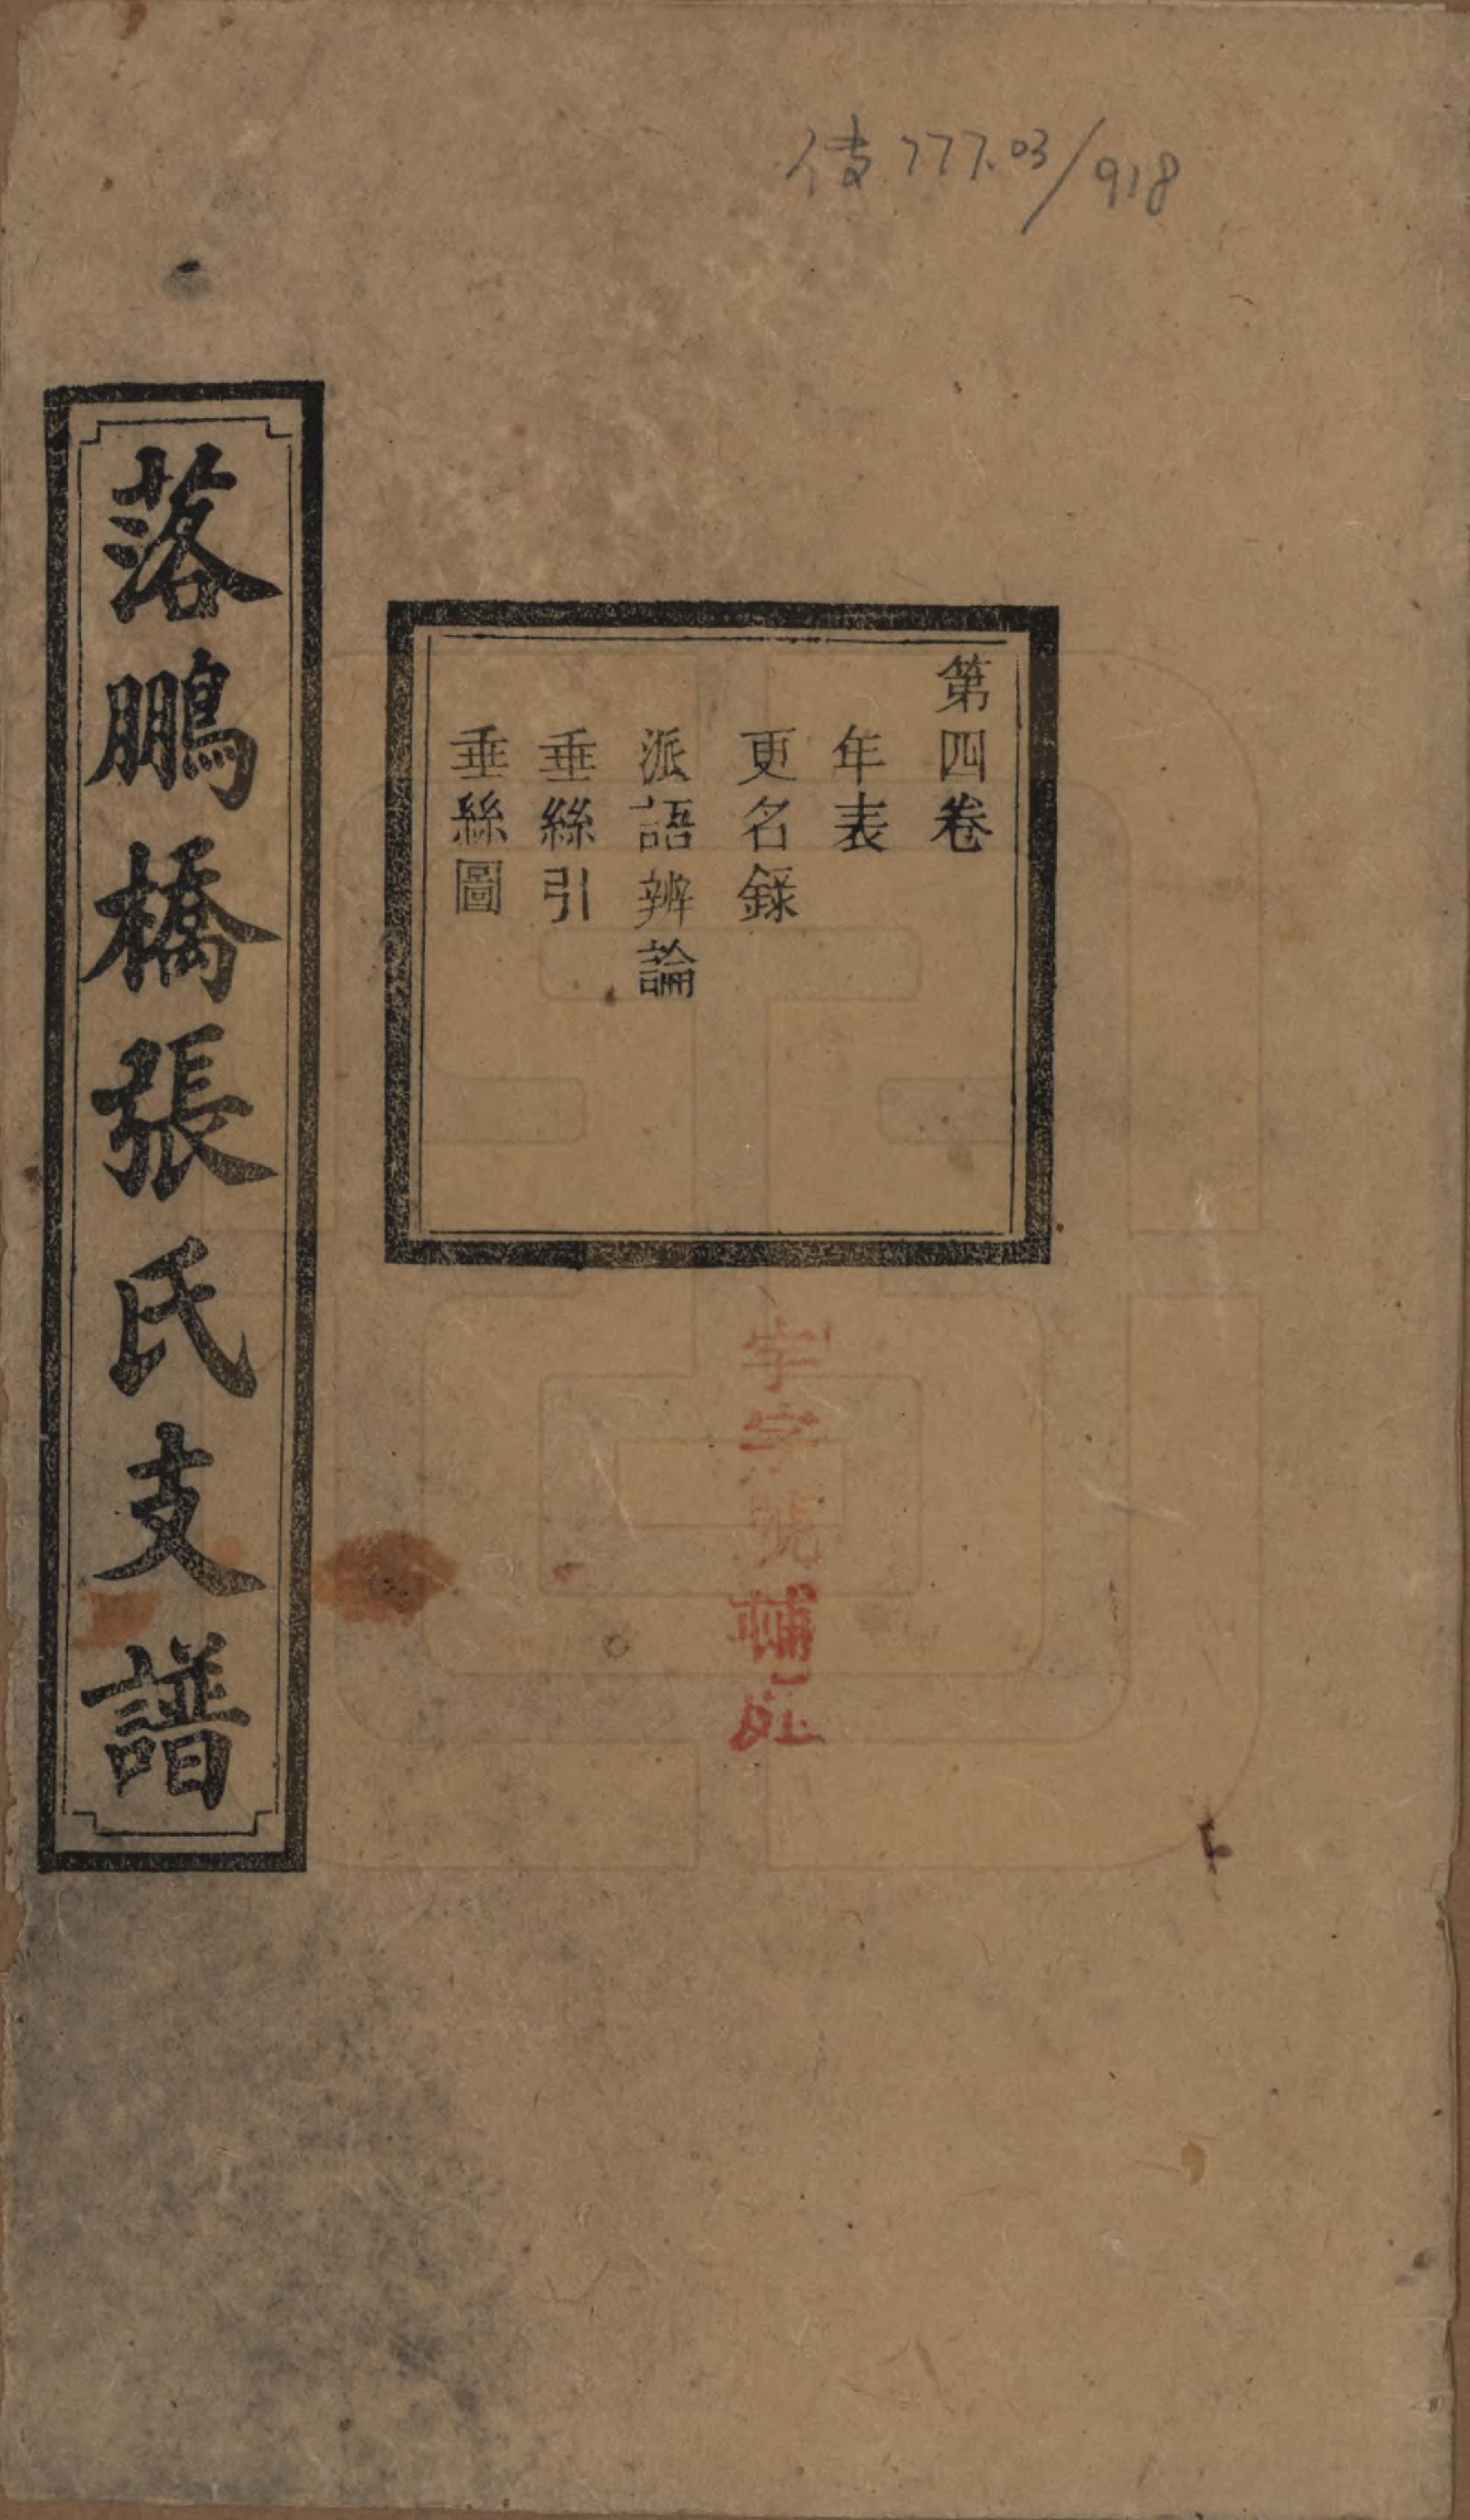 传777.03/918
第四卷
年表
更名錄
派語辨論
垂絲引
垂絲圖
落鵬橋張氏支譜
字號輔